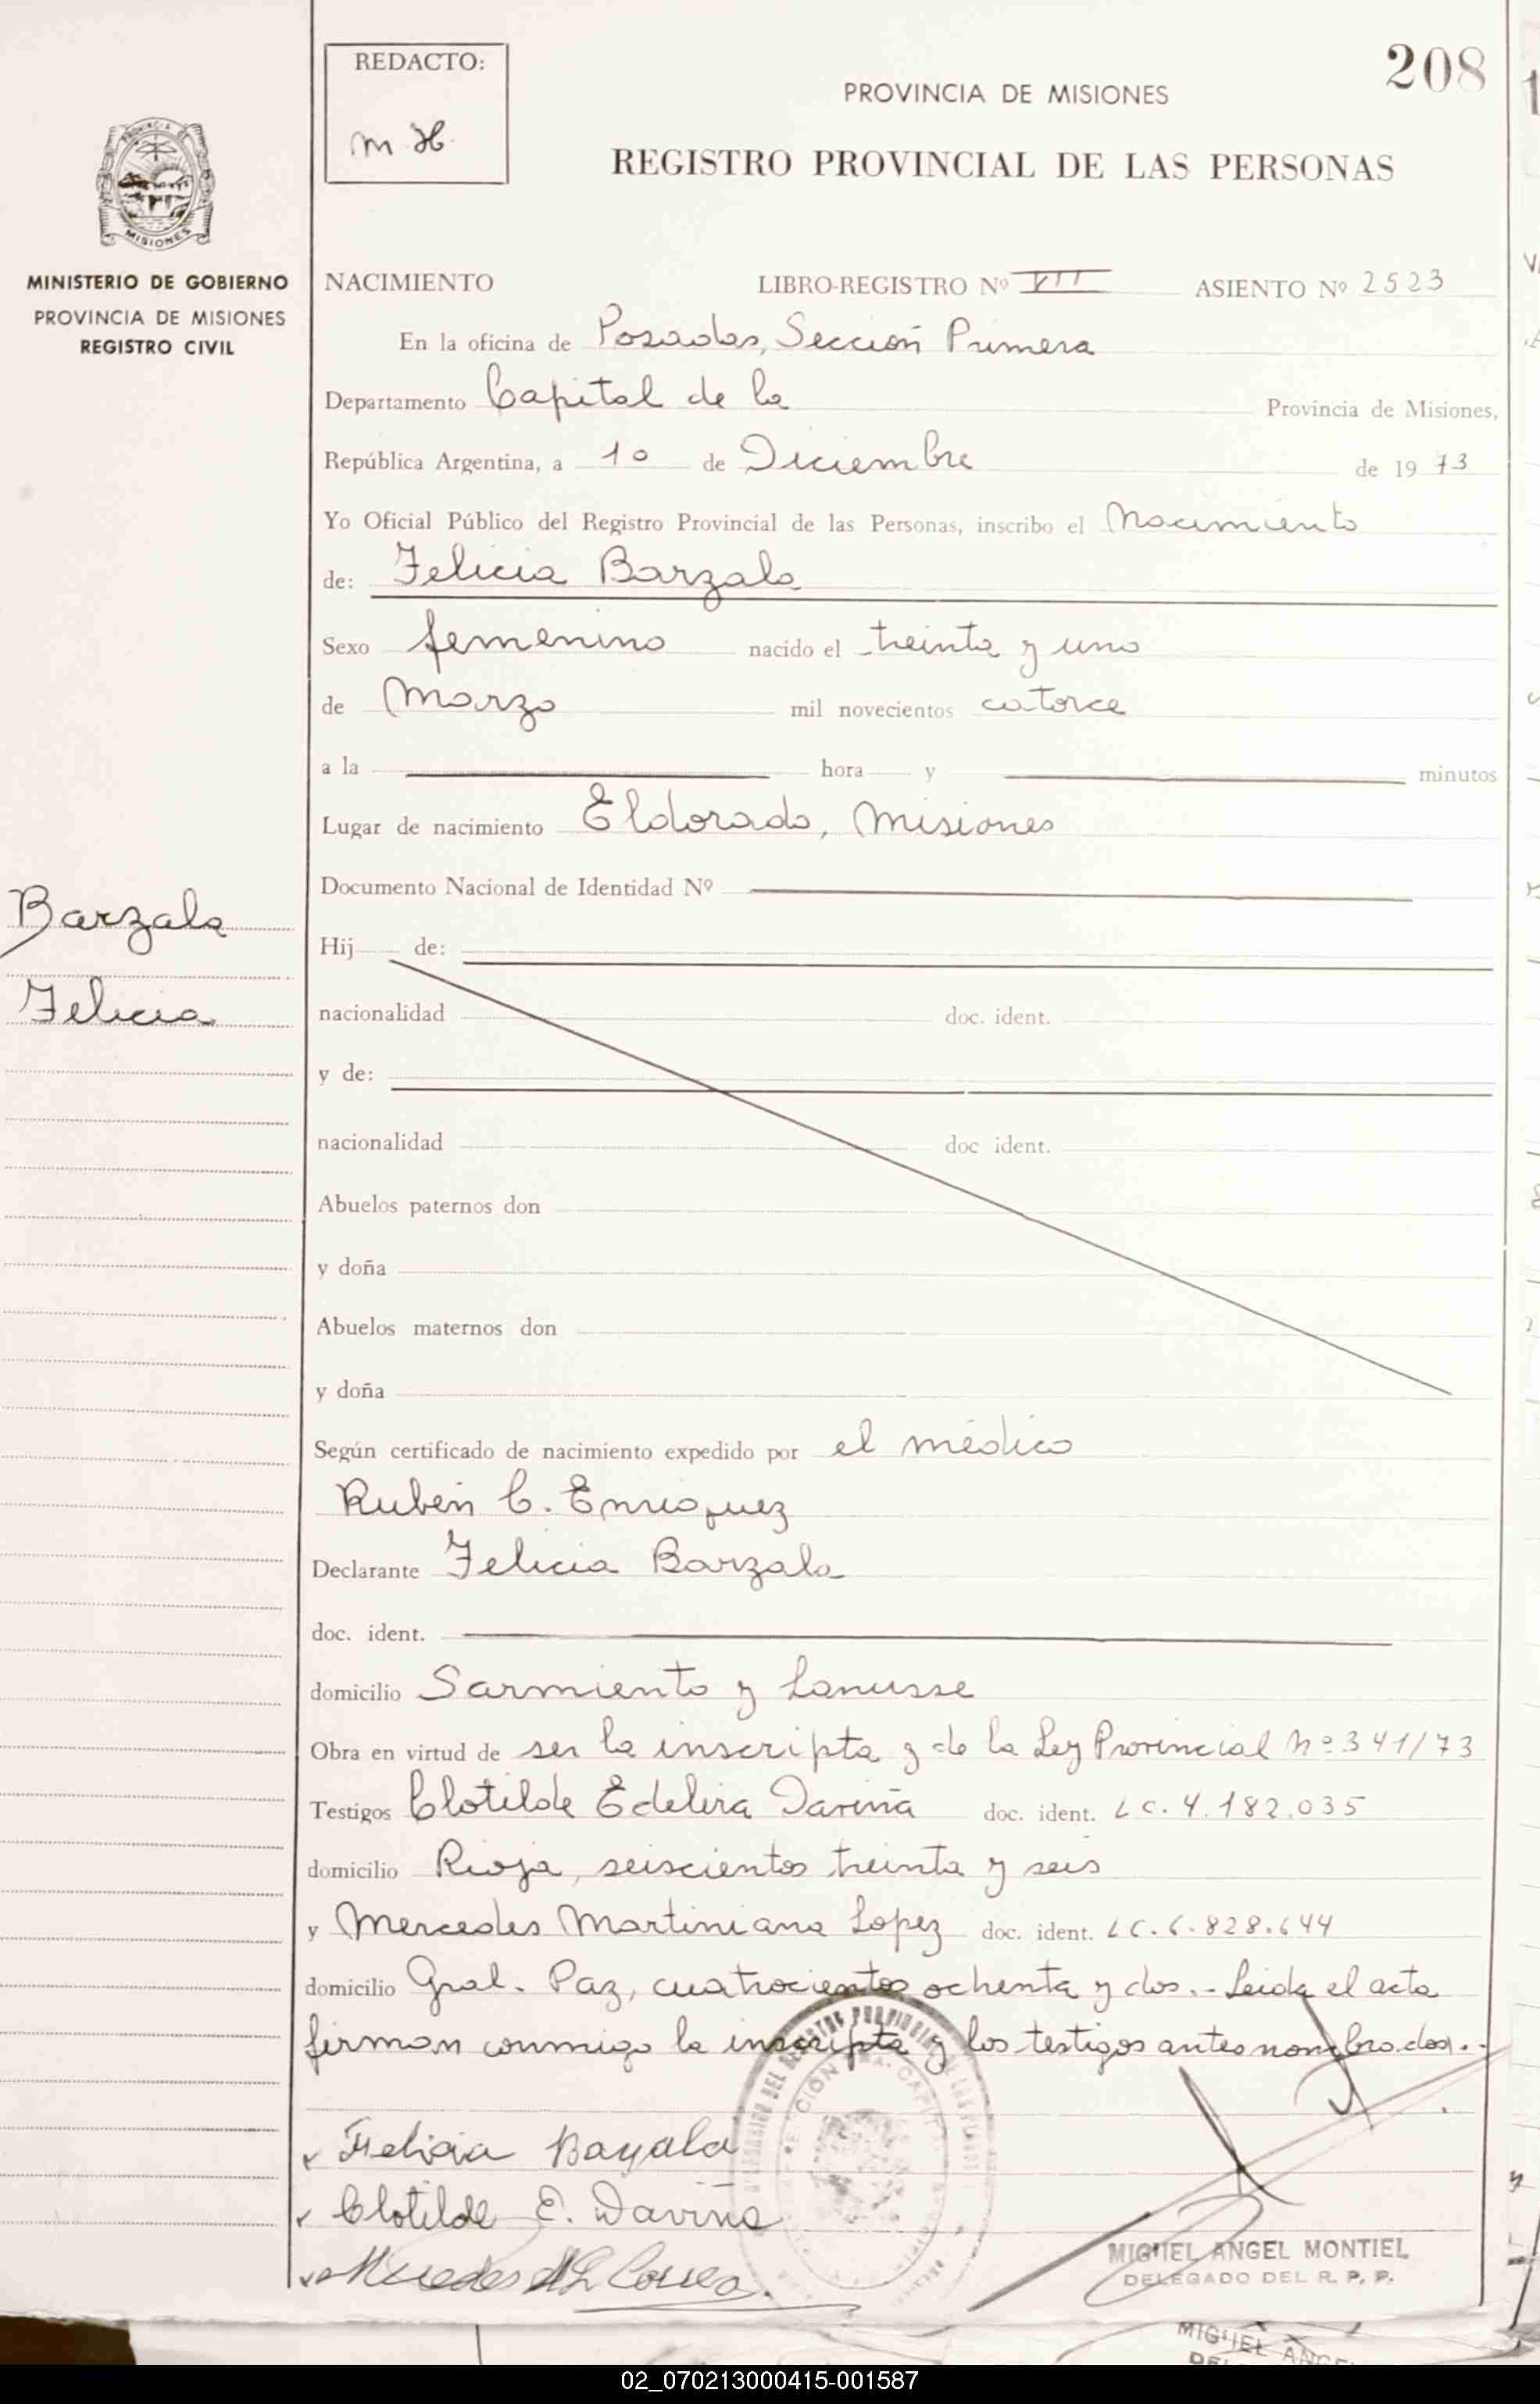 REDACTO:
M H.
208
PROVINCIA DE MISIONES
REGISTRO PROVINCIAL DE LAS PERSONAS
PROVINCIA DE
MISIONES
MINISTERIO DE GOBIERNO
PROVINCIA DE MISIONES
REGISTRO CIVIL
NACIMIENTO LIBRO-REGISTRO Nº VII ASIENTO Nº 2523
En la oficina de Posadas, Sección Primera
Departamento Capital de la Provincia de Misiones,
República Argentina, a 10 de Diciembre de 19 73
Yo Oficial Público del Registro Provincial de las Personas, inscribo el Nacimiento
de: Felicia Barzala
Sexo femenino nacido el treinta y uno
de Marzo mil novecientos catorce
a la hora y minutos
Lugar de nacimiento Eldorado, Misiones
Documento Nacional de Identidad Nº
Barzala
Felicia
Hij de:
nacionalidad doc. ident.
y de:
nacionalidad doc ident.
Abuelos paternos don
y doña
Abuelos maternos don
y doña
Según certificado de nacimiento expedido por el médico
Rubén C. Enriquez
Declarante Felicia Barzala
doc. ident.
domicilio Sarmiento y Lanusse
Obra en virtud de ser la inscripta y de la Ley Provincial Nº 341/73
Testigos Clotilde Edelira Daviña doc. ident. LC. 4.182.035
domicilio Rioja, seiscientos treinta y seis
y Mercedes Martiniana Lopez doc. ident. LC. 6.828.644
domicilio Gral. Paz, cuatrocientos ochenta y dos.- Leida el acta
firman conmigo la inscripta y los testigos antes nombrados.-
Felicia Bayala
Clotilde E. Daviña
MIGUEL ANGEL MONTIEL
DELEGADO DEL R. P. P.
02_070213000415-001587